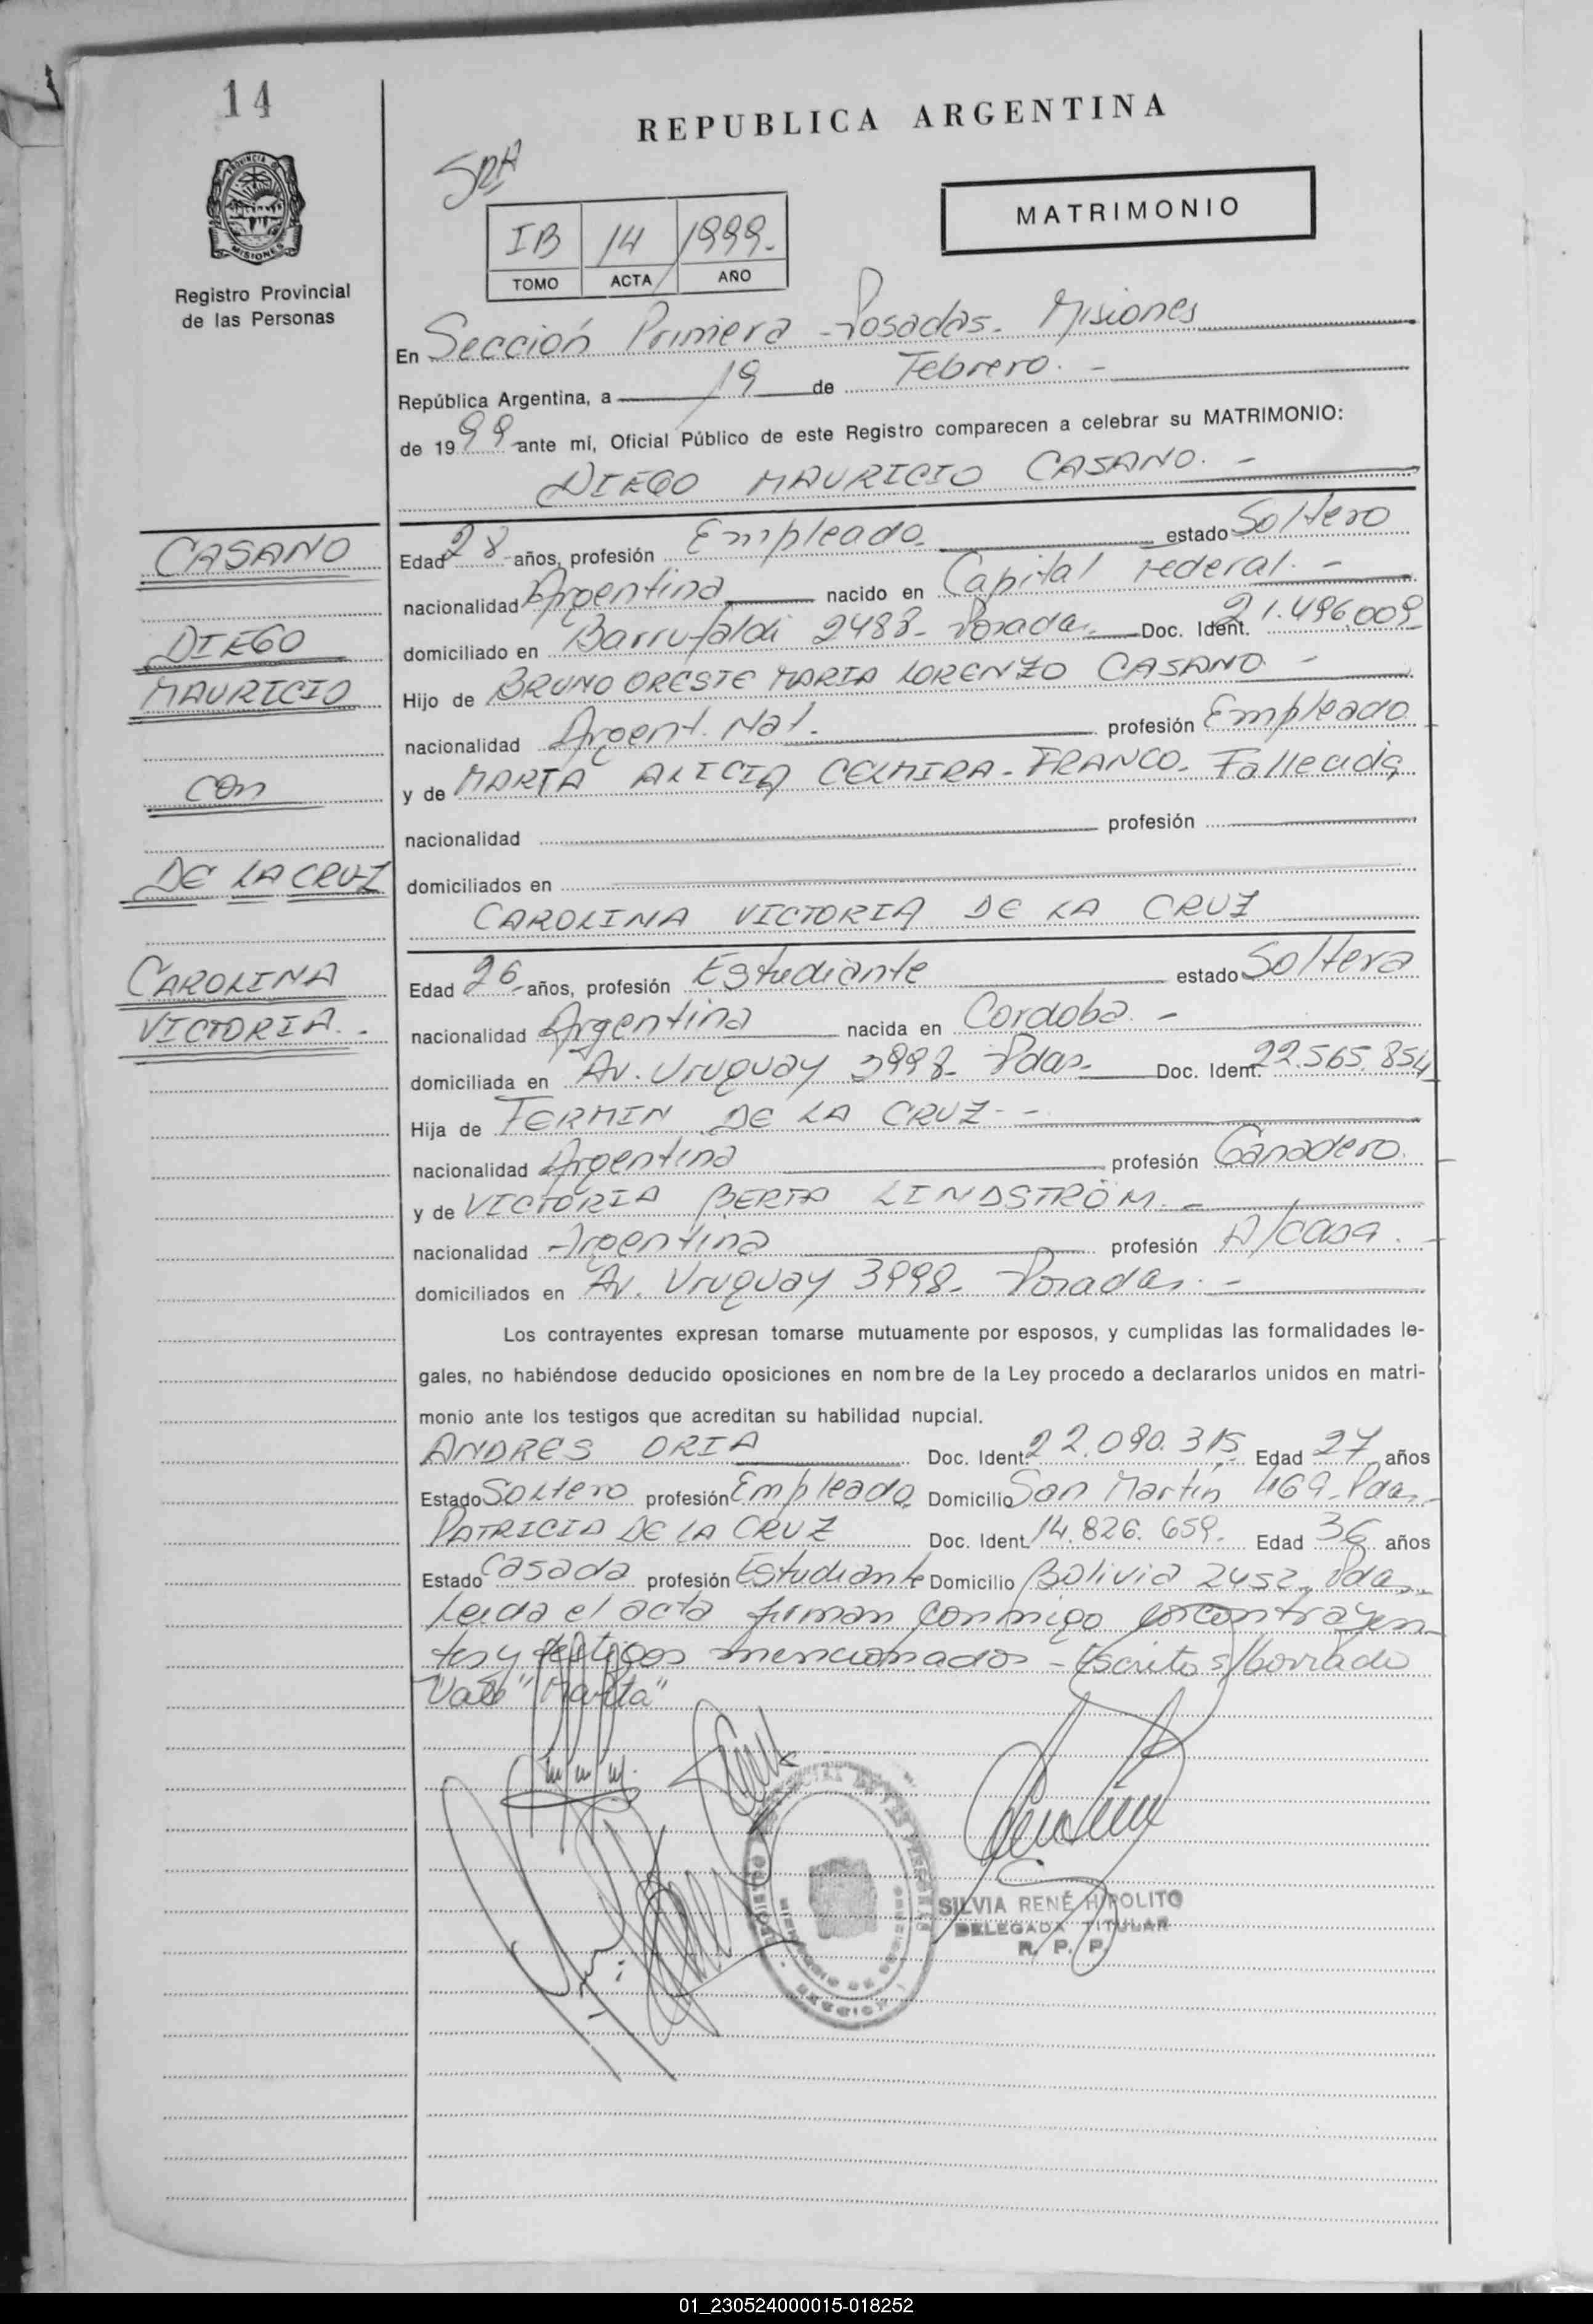 14
REPUBLICA ARGENTINA
SRA
MATRIMONIO
IB 14 1999.
TOMO ACTA AÑO
PROVINCIA D
MISIONES
Registro Provincial
de las Personas
En Sección Primera - Posadas. Misiones
República Argentina, a 19 de Febrero. -
de 1999 ante mí, Oficial Público de este Registro comparecen a celebrar su MATRIMONIO:
DIEGO MAURICIO CASANO. -
CASANO
DIEGO
MAURICIO
con
DE LA CRUZ
CAROLINA
VICTORIA. -
Edad 28 años, profesión Empleado estado Soltero
nacionalidad Argentina nacido en Capital Federal. -
domiciliado en Barrufaldi 2488- Posadas. Doc. Ident. 21.496.009-
Hijo de BRUNO ORESTE MARIA LORENZO CASANO -
nacionalidad Argent. Nat. profesión Empleado
y de MARTA ALICIA CELMIRA - FRANCO - Fallecida
nacionalidad profesión
domiciliados en
CAROLINA VICTORIA DE LA CRUZ
Edad 26 años, profesión Estudiante estado Soltera
nacionalidad Argentina nacida en Cordoba. -
domiciliada en Av. Uruguay 3998- Pdas- Doc. Ident. 22.565.854
Hija de FERMIN DE LA CRUZ - -
nacionalidad Argentina profesión Ganadero
y de VICTORIA BERTA LINDSTRÖM. -
nacionalidad Argentina profesión A/casa.
domiciliados en Av. Uruguay 3998- Posadas. -
Los contrayentes expresan tomarse mutuamente por esposos, y cumplidas las formalidades le-
gales, no habiéndose deducido oposiciones en nombre de la Ley procedo a declararlos unidos en matri-
monio ante los testigos que acreditan su habilidad nupcial.
ANDRES ORIA Doc. Ident. 22.090.315 Edad 27 años
Estado Soltero profesión Empleado Domicilio San Martín 469- Pdas-
PATRICIA DE LA CRUZ Doc. Ident. 14.826.659- Edad 36 años
Estado Casada profesión Estudiante Domicilio Bolivia 2452- Pdas-
Leida el acta firman conmigo los contrayen
tes y testigos mencionados - Escrito s/borrado
Vale "Marta"
SILVIA RENÉ HIPOLITO
DELEGADA TITULAR
R. P. P.
01_230524000015-018252